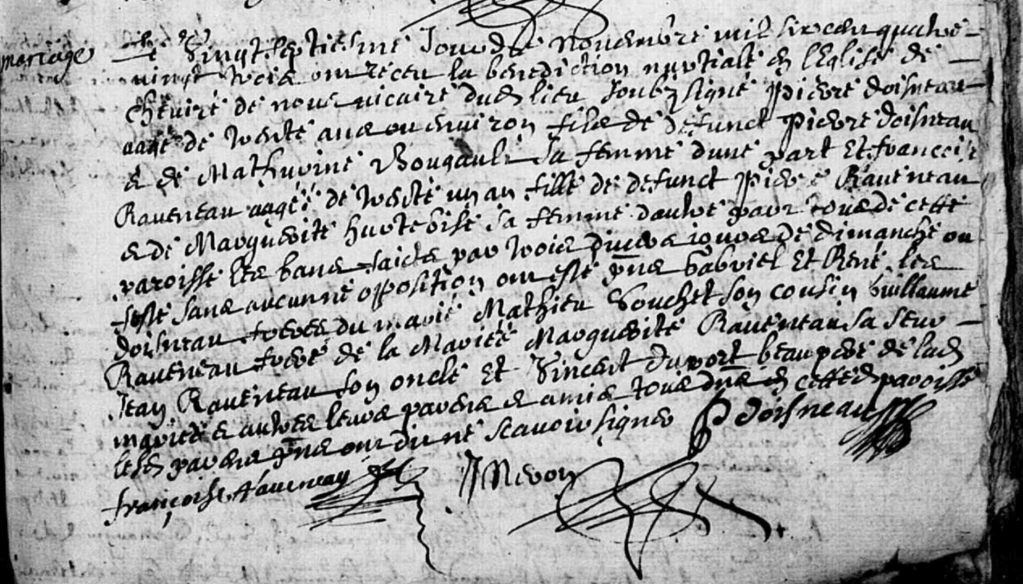 mariage
Le Vingt septiesme Jour de novembre mil six cen quatre
vingt trois ont receu la benediction nuptiale en l'Eglise de
Cheviré de nous vicaire dud lieu soubz signé Pierre doisneau
aagé de trente ans ou environ filz de defunct Pierre doisneau
& de Mathurine Bougault sa femme d'une part Et francoise
Raveneau aagée de trente un an fille de defunct Pierre Raveneau
& de Marguerite hurtebise sa femme d'autre part tous de cette
paroisse les bans faicts par trois divers jours de dimanche ou
feste sans aucunne opposition ont esté pns Gabriel Et René les
doisneau freres du marié Mathieu Souchet son cousin Guillaume
Raveneau frere de la Mariée Marguerite Raveneau sa seur
Jean Raveneau son oncle Et Vincent duport beau pere de lad
mariée & autres leurs parens & amis tous dms en cette d paroisse
lesd parens pns ont dit ne scavoir signer P doisneau
françoise Raveneau